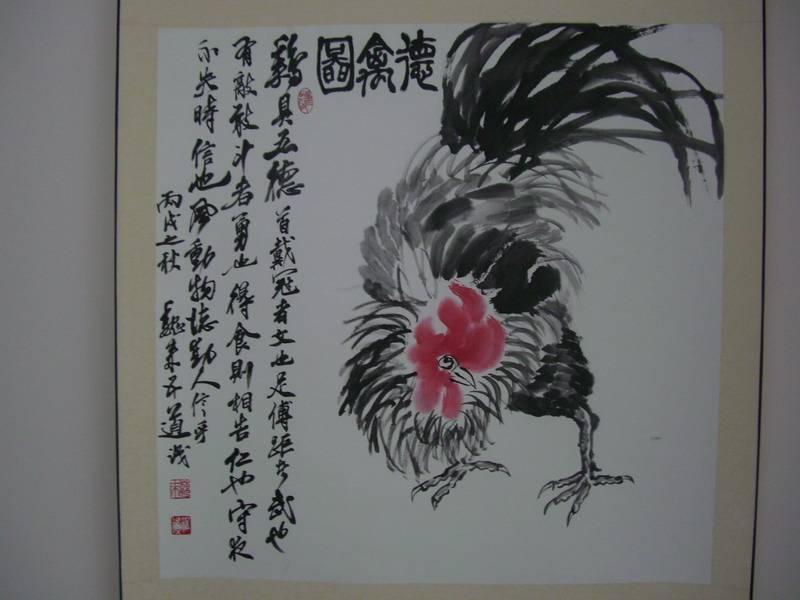 德禽圖
鷄具五德首戴冠者文也足傅距者武也
有敵敢斗者勇也得食則相告仁也守夜
不失時信也風動物德勤人
丙戌之秋
道识